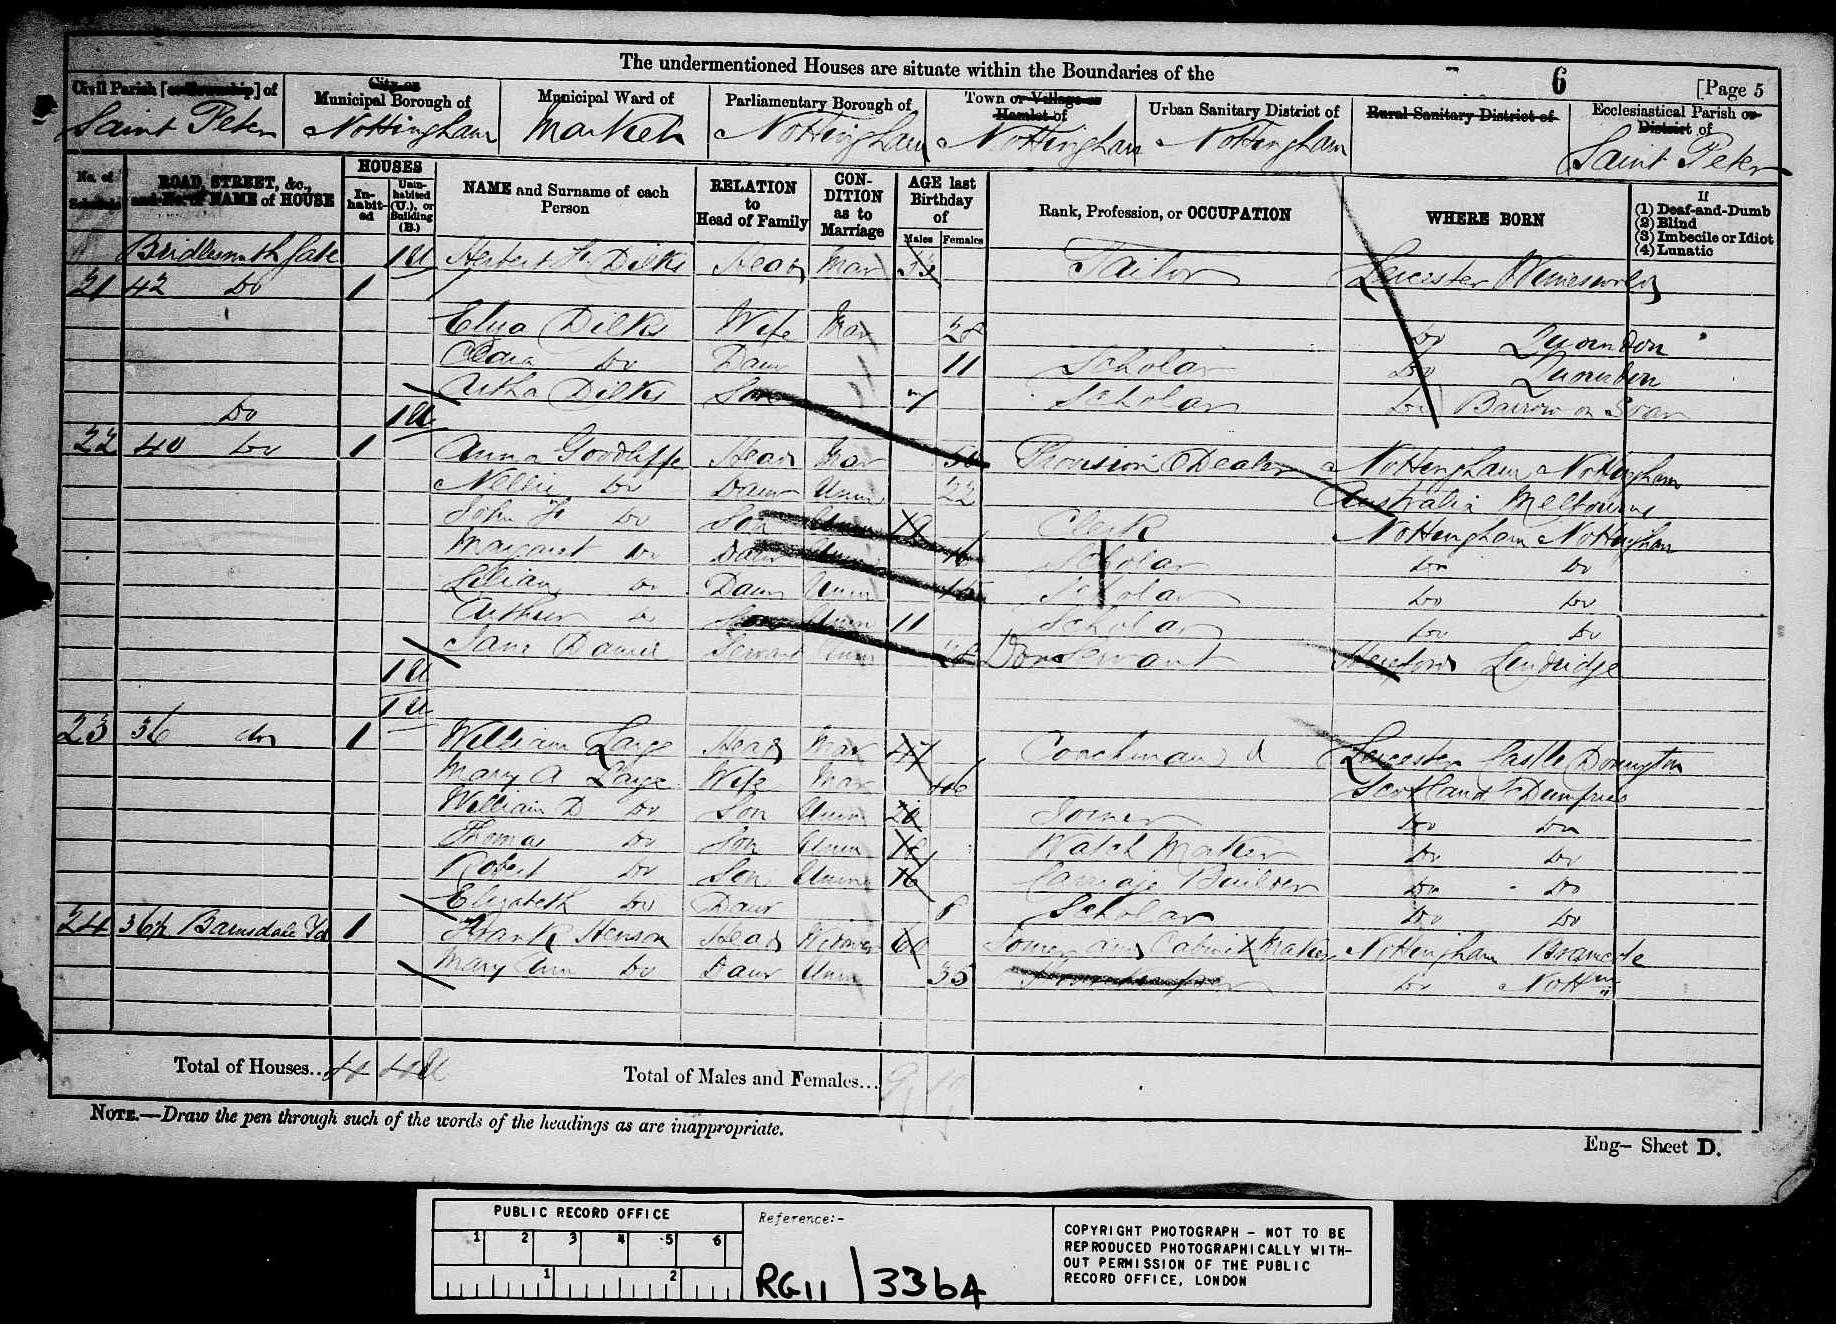 The undermentioned Houses are situate within the Boundaries of the
6
[Page 5
Civil Parish [or Township] of
Saint Peter
City or
Municipal Borough of
Nottingham
Municipal Ward of
Market
Parliamentary Borough of
Nottingham
Town or Village or
Hamlet of
Nottingham
Urban Sanitary District of
Nottingham
Rural Sanitary District of
Ecclesiastical Parish or
District of
Saint Peter
No. of
Schedule
ROAD, STREET, &c.,
and No. or NAME of HOUSE
HOUSES
In-
habit-
ed
Unin-
habited
(U.), or
Building
(B.)
NAME and Surname of each
Person
RELATION
to
Head of Family
CON-
DITION
as to
Marriage
AGE last
Birthday
of
Males
Females
Rank, Profession, or OCCUPATION
WHERE BORN
If
(1) Deaf-and-Dumb
(2) Blind
(3) Imbecile or Idiot
(4) Lunatic
Bridlesmith Gate 1 U Herbert H. Dilks Head Mar 33 Tailor Leicester Wimeswold
21 42 Do 1
Eliza Dilks Wife Mar 28 Do Quorndon
Clara Do Daur 11 Scholar Do Quorndon
Dilks Son 7 Scholar Do Barrow on Soar
Do 1 U
22 40 Do 1 Anna Goodliffe Head Mar 50 Provision Dealer Nottingham Nottingham
Nellie Do Daur Unm 22 Australia Melbourne
John Do Son Unm Clerk Nottingham Nottingham
Margaret Do Daur Unm 16 Scholar Do Do
Lilian Do Daur Unm Scholar Do Do
Arthur Do Son Unm 11 Scholar Do Do
Jane Servant Unm Dom Servant Hereford
1 U
1 U
23 36 do 1 William Large Head Mar 47 Coachman d Leicester Castle Donington
Mary A Large Wife Mar 46 Scotland Dumfries
William D Do Son Unm 20 Joiner Do Do
Thomas Do Son Unm 18 Watch Maker Do Do
Robert Do Son Unm 16 Carriage Builder Do Do
Elizabeth Do Daur 8 Scholar Do Do
24 36½ Barnsdale Yd 1 Frank Henson Head Widower 60 Joiner and Cabinet Maker Nottingham Bramcote
Mary Ann Do Daur Unm 35 Do Nottm
Total of Houses... 4 4 U
Total of Males and Females... 9 10
NOTE.—Draw the pen through such of the words of the headings as are inappropriate.
Eng– Sheet D.
PUBLIC RECORD OFFICE
1 2 3 4 5 6
1 2
Reference:-
RG11 / 3364
COPYRIGHT PHOTOGRAPH – NOT TO BE
REPRODUCED PHOTOGRAPHICALLY WITH-
OUT PERMISSION OF THE PUBLIC
RECORD OFFICE, LONDON